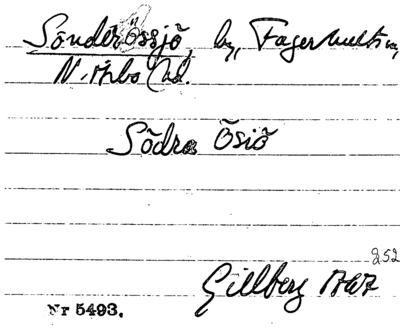 Sönder Össjö, by, Fagerhults sn,
N. Åsbo hd.
Södra Ösiö
252
Gillberg 1767
Nr 5493.